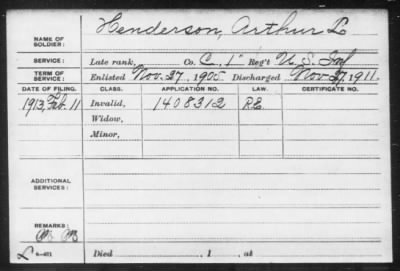 Henderson, Arthur L
NAME OF SOLDIER:
SERVICE: Late rank, Co. C. 1" Reg't U.S. Inf
TERM OF SERVICE: Enlisted Nov. 27, 1908 Discharged Nov 27, 1911.
DATE OF FILING. CLASS. APPLICATION NO. LAW. CERTIFICATE NO.
1913, Feb. 11 Invalid, 1408312 R.E.
Widow,
Minor,
ADDITIONAL SERVICES:
REMARKS:
6-461 Died , 1 , at